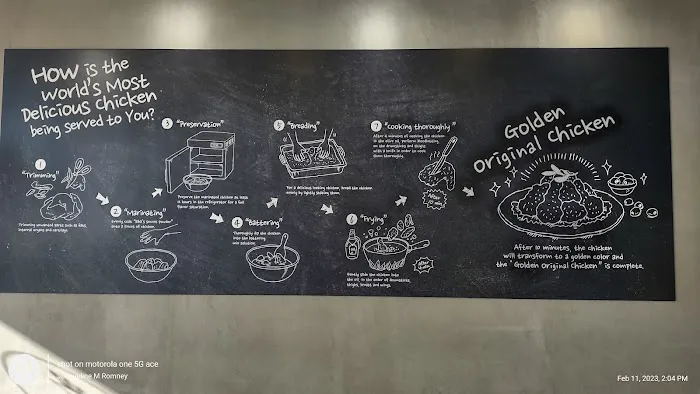 How is the
World's Most
Delicious Chicken
being served to You?
1
"Trimming"
Trimming unneeded parts such as fats,
internal organs and cartilage.
2
"Marinating"
Evenly coat
into a piece of chicken.
3
"Preservation"
Preserve the marinated chicken at least
12 hours in the refrigerator for a full
flavor saturation.
4
"Battering"
Thoroughly dip the chicken
into the battering
mix solution.
5
"Breading"
For a delicious looking chicken, bread the chicken
evenly by lightly shaking them.
"Frying"
Gently slide the chicken into
the oil in the order of drumsticks,
thighs, breast and wings.
7
"Cooking thoroughly"
After 6 minutes of cooking the chicken
in the olive oil, perform bloodletting
on the drumsticks and thighs
with a knife in order to cook
them thoroughly.
Golden
Original Chicken
After 10 minutes, the chicken
will transform to a golden color and
the "Golden Original Chicken" is complete.
shot on motorola one 5G ace
M Romney
Feb 11, 2023, 2:04 PM